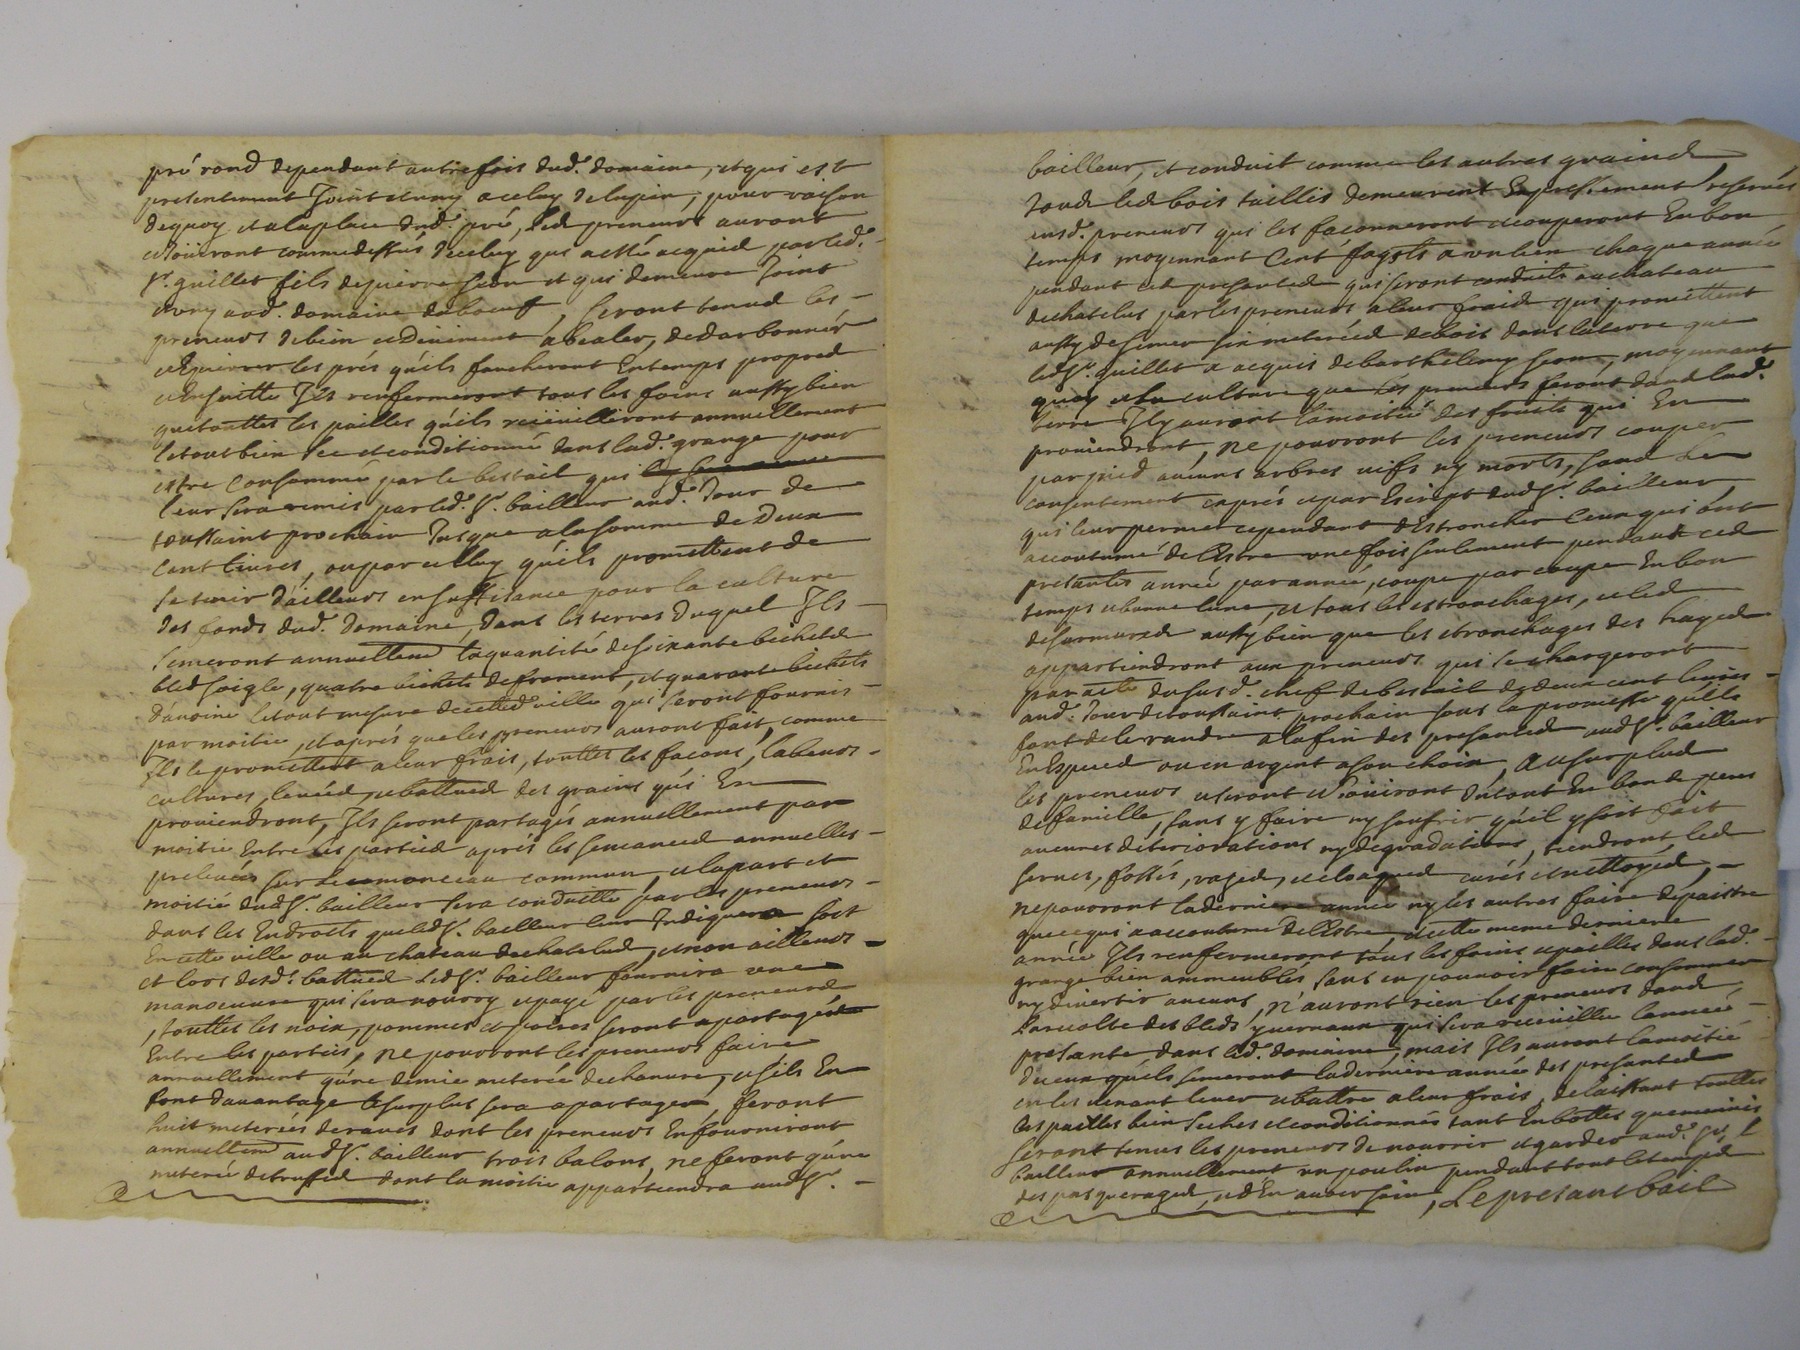 pré rond dependant autrefois dud. domaine, et qui est
presentement Joint et uny a celuy de lupin, pour raison
dequoy et alaplace dud. pré, led preneurs auront
et Joüiront comme dessus de celuy qui a esté acquis par led.
Sr. guillet fils de pierre et qui demeure Joint
et uny aud. domaine duboeuf, Seront tenus les
preneurs de bien et deüement á bealer, dedarbonner
et Epierrer les prés qu'ils faucheront En temps propred
et Ensuitte Ils renfermeront tous les foins aussy bien
que touttes les pailles qu'ils recüeilliront annuellement
letout bien sec et conditionné dans lad. grange pour
estre Consommé par le bestail qui
leur sera remis par led. Sr. bailleur aud. Jour de
toussaint prochain Jusque a la somme de Deux
Cent livres, ou par celluy qu'ils promettent de
se tenir d'ailleurs en suffisance pour la culture
des fonds dud. Domaine, Dans les terres Duquel Ils
semeront annuellemt laquantité de soixante bicheted
bled soigle, quatre bichets de froment, et quarante bichets
D'avoine letout mesure de cetted ville qui seront fournis
par moitié, et aprés que les preneurs auront fait, comme
Ils le promettent a leur frais, touttes les facons, labeurs
cultures, levéed, et battued des grains qui En
proviendront, Ils seront partagés annuellement par
moitié Entre les partied aprés les semanced annuelles
prelevées sur le monceau commun, et la part et
moitié dud Sr. bailleur sera conduitte par les preneurs
dans les Endroits que led Sr. bailleur leur Indiquera soit
En cette ville ou au chateau dechatelud, et non ailleurs
et lors desd. battued Led Sr. bailleur fournira une
manoeuvre qui sera nourry et payé par les preneurs
, touttes les noix, pommes et poires seront apartagées
Entre les parties, ne pouvront les preneurs faire
annuellement qu'une demie meterée de chanvre, et s'ils En
font davantage le surplus sera a partager, feront
huit meterées de raves dont les preneurs En fourniront
annuellemt aud Sr. bailleur trois balons, ne feront qu'une
meterée detruffed dont la moitié appartiendra aud Sr.
bailleur, et conduit comme les autres graind
Tous led bois taillis demeurent Expressement reservés
ausd. preneurs qui les façonneront et couperont En bon
temps moyennant Cent fagots chaque année
pendant cet presented qui seront conduits auchateau
dechatelus par les preneurs a leur fraid qui promettent
aussy de semer six meteréed debois dans la terre que
led Sr. guillet a acquis de barthelemy, moyennant
quoy et la culture que les preneurs feront dans lad.
terre Ils y auront la moitié des fruits qui En
proviendront, ne pouvront les preneurs couper
par pied aucuns arbres vifs ny morts, sans Le
consentement exprés et par Escript dud Sr. bailleur
qui leur permet cependant d'Estroncher Ceux qui ont
accoutumé de L'Estre une fois seulement pendant ced
presantes année par année, coupe par coupe En bon
temps et bonne lune, et tous les estronchages, et led
desurmured aussy bien que les etronchages des hayed
appartiendront aux preneurs qui se chargeront
par acte du susd. chef de bestail de deux cent livres
aud. Jour de toussaint prochain sous la promesse qu'ils
font de le randre a la fin des presanted aud Sr. bailleur
En Espeed ou en argent a son choix, Au surplud
les preneurs useront et Joüiront du tout En bonds peres
de famille, sans y faire ny soufrir qu'il y soit fait
aucunes deteriorations ny degradations, tiendront led
serves, fossés, razed, et cloaqued curés et nettoyed,
ne pouvront la derniere année ny les autres faire depaistre
que ce qui a accoutumé de L'Estre, et cette meme derniere
année Ils renfermeront tous les foins et pailles dans lad.
grange bien ammeublés sans en pouvoir faire consommer
ny divertir aucuns, n'auront rien les preneurs dans
la recolte des bleds yvernaux qui sera recüeillie l'année
presante dans led. domaine, mais Ils auront la moitié
de ceux qu'ils semeront la derniere année des presanted
en les venant lever et battre a leur frais, delaissant touttes
les pailles bien seches et conditionnés tant En bottes que
Seront tenus les preneurs de nourrir et garder aud. Sr.
bailleur annuellement un poulin pendant tout letempd
des pasqueraged, et d'En avoir soin, Le presant bail